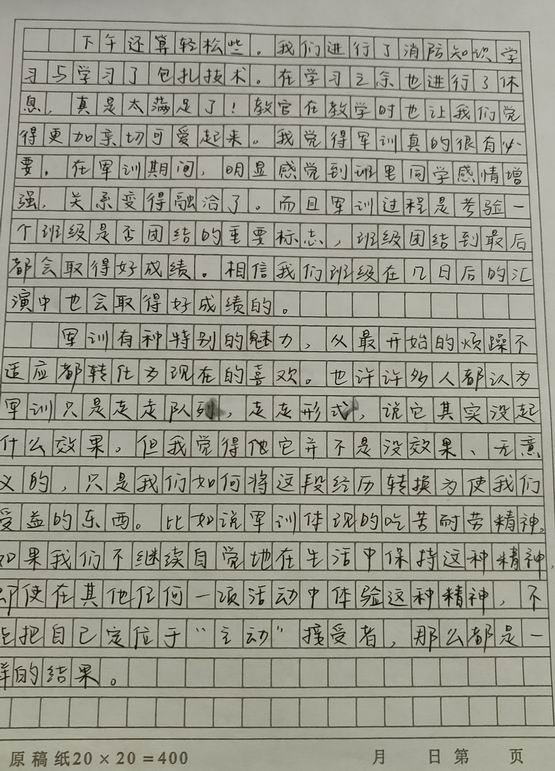 下午还算轻松些。我们进行了消防知识学
习与学习了包扎技术。在学习之余也进行了休
息，真是太满足了！教官在教学时也让我们觉
得更加亲切可爱起来。我觉得军训真的很有必
要。在军训期间，明显感觉到班里同学感情增
强，关系变得融洽了。而且军训过程是考验一
个班级是否团结的重要标志，班级团结到最后
都会取得好成绩。相信我们班级在几日后的汇
演中也会取得好成绩的。
军训有种特别的魅力，从最开始的烦躁不
适应都转化为现在的喜欢。也许许多人都认为
军训只是走走队列，走走形式，说它其实没起
什么效果。但我觉得他它并不是没效果、无意
义的，只是我们如何将这段经历转换为使我们
受益的东西。比如说军训体现的吃苦耐劳精神。
如果我们不继续自觉地在生活中保持这种精神，
即使在其他任何一项活动中体验这种精神，不
去把自己定位于“主动”接受者，那么都是一
样的结果。
原稿纸20×20=400 月 日第 页